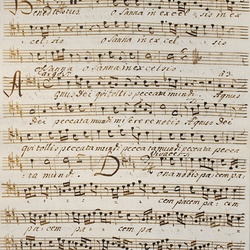 Benedictus. osanna in excelsis in ex
celsis osanna in excel sis
osanna osanna in excelsis. 13.
Agnus Dei qui tollis peccata mundi.
Dei peccata mundi miserere nobis Agnus Dei
qui tollis peccata mundi peccata mundi peccata
ta mundi. Dona nobis pacem pa
cem pacem pacem
pacem pacem pa